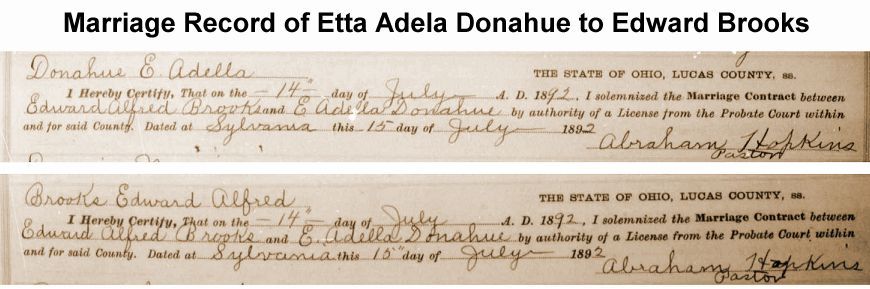 Marriage Record of Etta Adela Donahue to Edward Brooks
Donahue E. Adella
THE STATE OF OHIO, LUCAS COUNTY, ss.
I Hereby Certify, That on the – 14" – day of July A. D. 1892, I solemnized the Marriage Contract between
Edward Alfred Brooks and E Adella Donahue by authority of a License from the Probate Court within
and for said County. Dated at Sylvania this 15 day of July 1892
Abraham Hopkins
Pastor
Brooks Edward Alfred
THE STATE OF OHIO, LUCAS COUNTY, ss.
I Hereby Certify, That on the – 14" – day of July A. D. 1892, I solemnized the Marriage Contract between
Edward Alfred Brooks and E. Adella Donahue by authority of a License from the Probate Court within
and for said County. Dated at Sylvania this 15" day of July 1892
Abraham Hopkins
Pastor